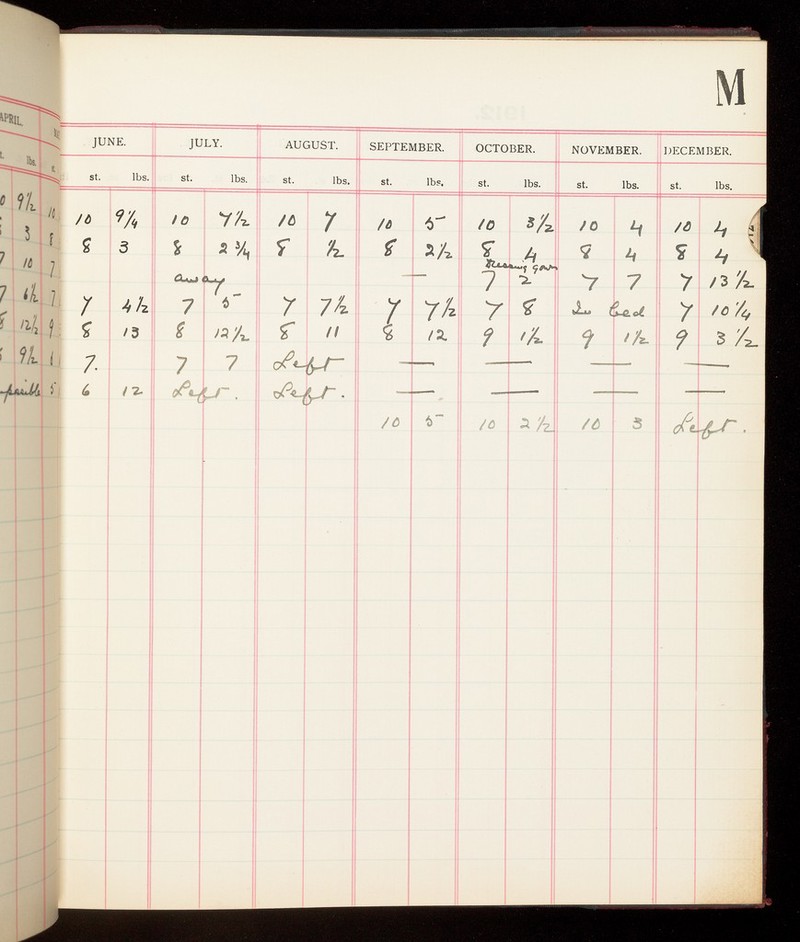 M
APRIL.
JUNE. JULY. AUGUST. SEPTEMBER. OCTOBER. NOVEMBER. DECEMBER.
lbs. st. st. lbs. st. lbs. st. lbs. st. lbs. st. lbs. st. lbs. st. lbs.
9½ 10 10 9¼ 10 7½ 10 7 10 5 10 3½ 10 4 10 4
3 8 8 3 8 2¾ 8 ½ 8 2½ 8 4 8 4 8 4
Dressing gown
10 7 away — 7 2 7 7 7 13½
6½ 7 7 4½ 7 5 7 7½ 7 7½ 7 8 In bed 7 10¼
12½ 9 8 13 8 12½ 8 11 8 12 9 1½ 9 1½ 9 3½
9½ 6 7. 7 7 Left — — — —
5 6 12 Left. Left. — — — —
10 5 10 2½ 10 3 Left.